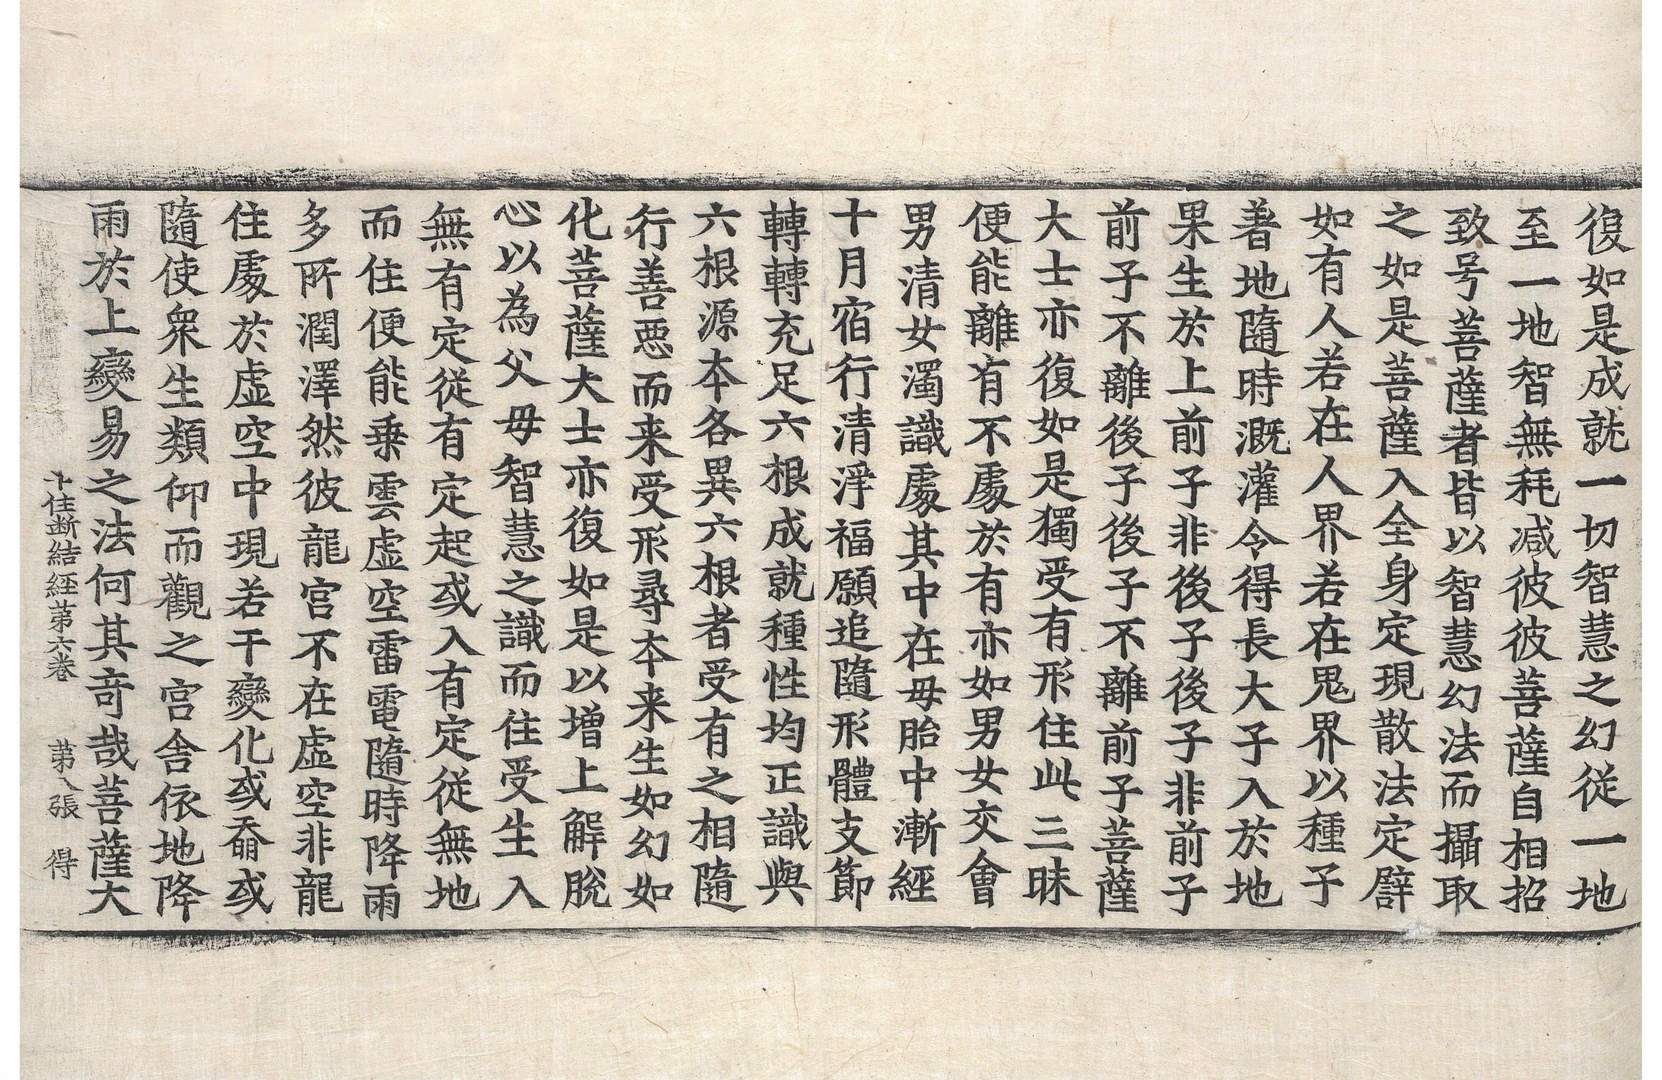 復如是成就一切智慧之幻從一地
至一地智無耗減彼彼菩薩自相招
致号菩薩者皆以智慧幻法而攝取
之如是菩薩入全身定現散法定譬
如有人若在人界若在鬼界以種子
著地隨時溉灌令得長大子入於地
果生於上前子非後子後子非前子
前子不離後子後子不離前子菩薩
大士亦復如是獨受有形住此三昧
便能離有不處於有亦如男女交會
男清女濁識處其中在母胎中漸經
十月宿行清淨福願追隨形體支節
轉轉充足六根成就種性均正識與
六根源本各異六根者受有之相隨
行善惡而来受形尋本来生如幻如
化菩薩大士亦復如是以增上解脫
心以為父母智慧之識而住受生入
無有定從有定起或入有定從無地
而住便能乗雲虛空雷電隨時降雨
多所潤澤然彼龍宮不在虛空非龍
住處於虛空中現若干變化或奮或
隨使衆生類仰而觀之宮舍依地降
雨於上變易之法何其奇哉菩薩大
十住断結経第六卷 第八張 得